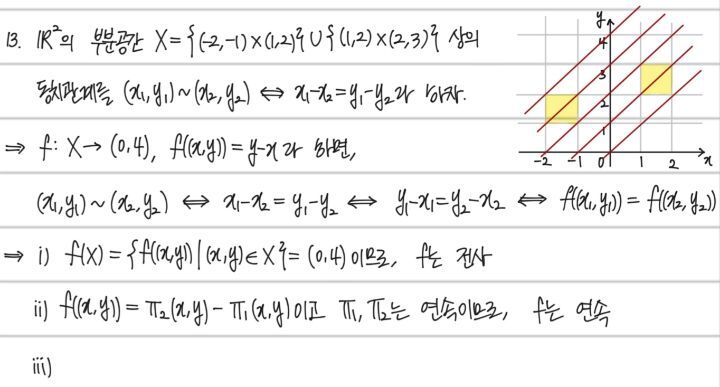 13. ℝ²의 부분공간 X={(-2,-1)×(1,2)}∪{(1,2)×(2,3)} 상의
동치관계를 (x₁,y₁)~(x₂,y₂) ⇔ x₁-x₂=y₁-y₂라 하자.
⇒ f: X→(0,4), f((x,y))=y-x라 하면,
(x₁,y₁)~(x₂,y₂) ⇔ x₁-x₂=y₁-y₂ ⇔ y₁-x₁=y₂-x₂ ⇔ f((x₁,y₁))=f((x₂,y₂))
⇒ i) f(X)={f((x,y))|(x,y)∈X}=(0,4)이므로, f는 전사
ii) f((x,y))=π₂(x,y)-π₁(x,y)이고 π₁,π₂는 연속이므로, f는 연속
iii)
y
4
3
2
1
-2 -1 0 1 2 x